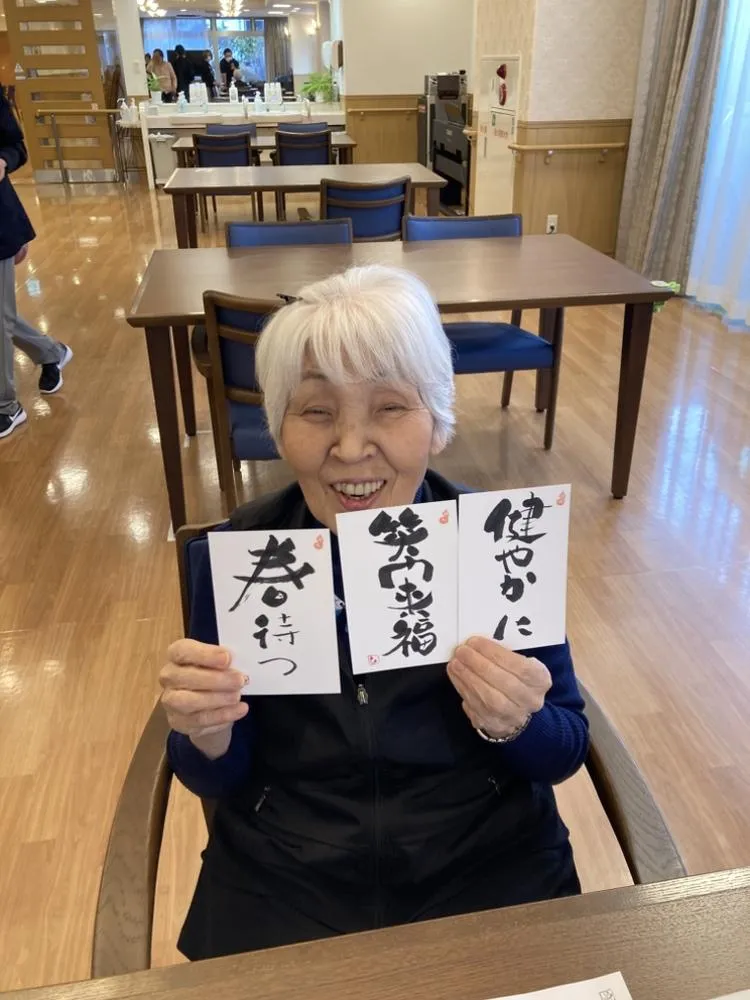 春待つ
笑門来福
健やかに